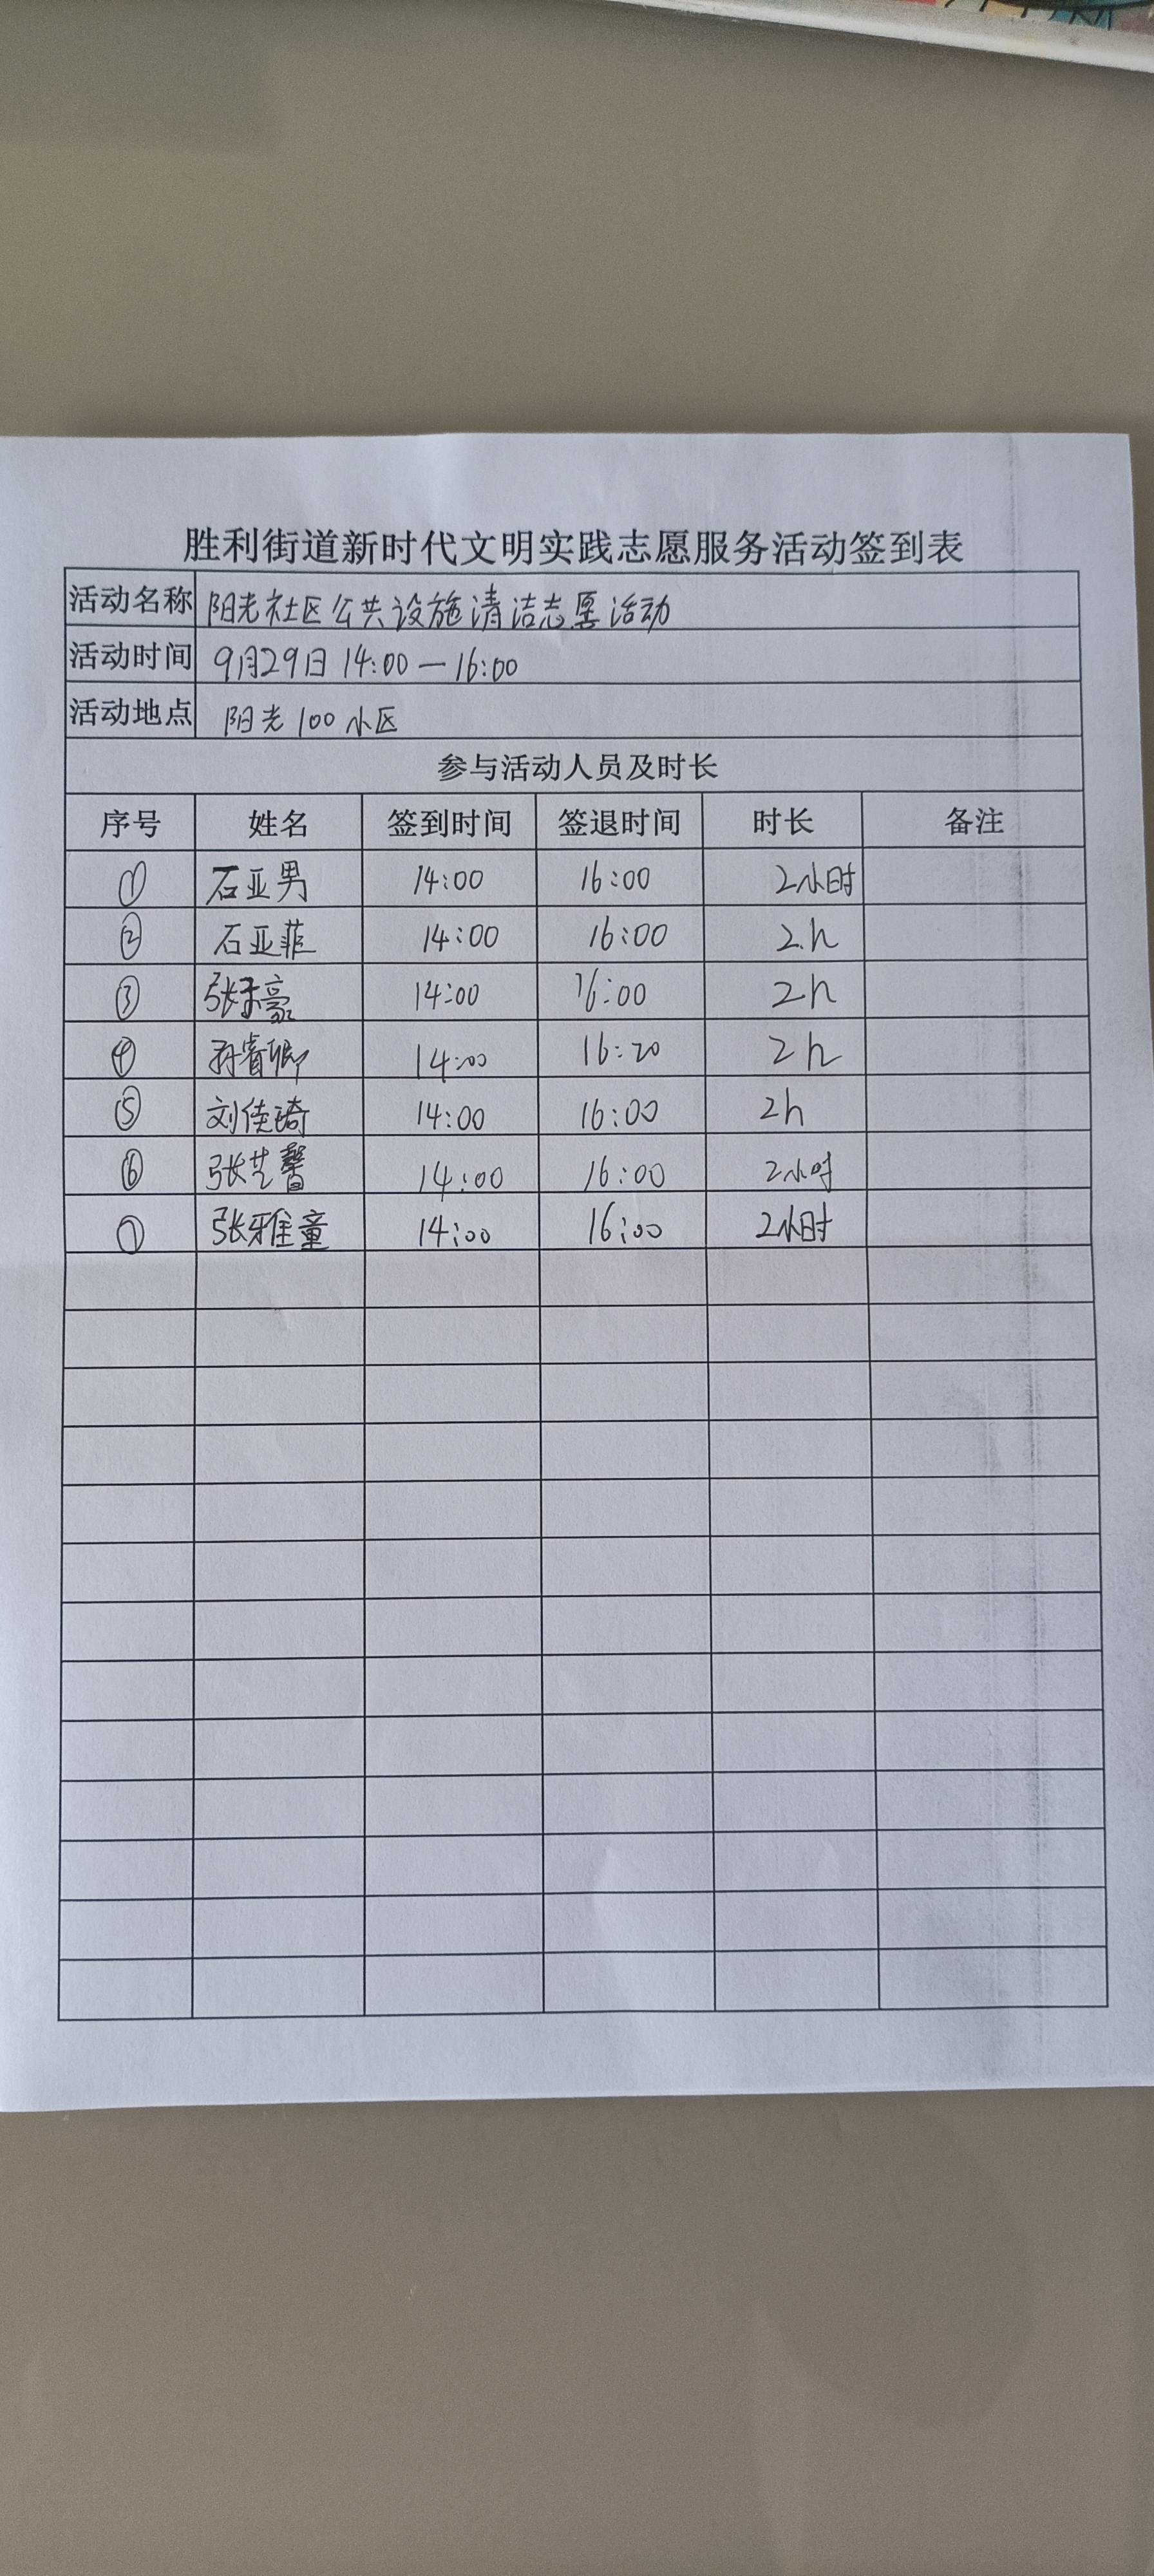 胜利街道新时代文明实践志愿服务活动签到表
活动名称 阳光社区公共设施清洁志愿活动
活动时间 9月29日 14:00—16:00
活动地点 阳光100小区
参与活动人员及时长
序号 姓名 签到时间 签退时间 时长 备注
① 石亚男 14:00 16:00 2小时
② 石亚菲 14:00 16:00 2h
③ 14:00 16:00 2h
④ 14:00 16:20 2h
⑤ 刘佳琦 14:00 16:00 2h
⑥ 张艺馨 14:00 16:00 2小时
⑦ 张雅童 14:00 16:00 2小时